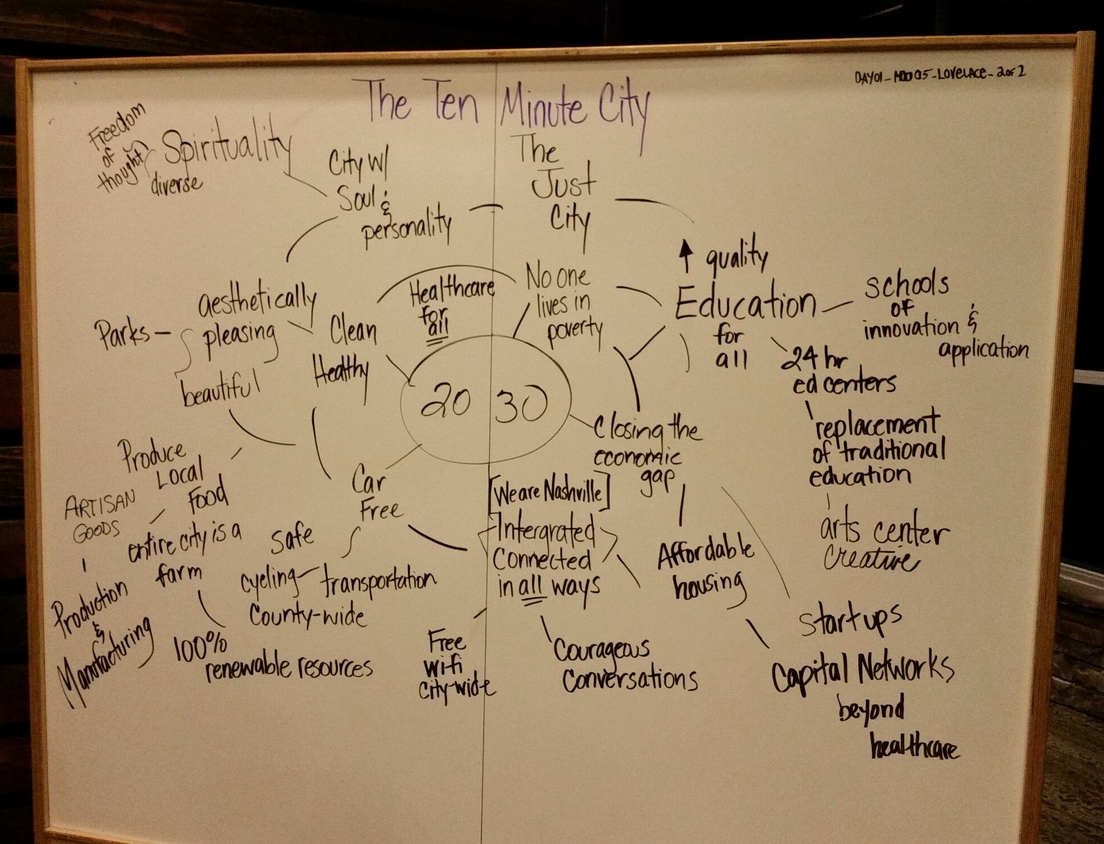 DAY01_MOD05_LOVELACE_2of2
The Ten Minute City
Freedom
of
thought
Spirituality
diverse
City w/
Soul &
personality
The
Just
City
aesthetically
pleasing
Parks
beautiful
Clean
Healthy
Healthcare
for
all
No one
lives in
poverty
quality
Education
for
all
schools
of
innovation &
application
24 hr
ed centers
replacement
of traditional
education
arts center
creative
20 30
Closing the
economic
gap
Affordable
housing
startups
Capital Networks
beyond
healthcare
[We are Nashville]
Intergrated
Connected
in all ways
Courageous
Conversations
Free
wi-fi
City-wide
Car
Free
safe
cycling transportation
County-wide
Produce
Local
Food
entire city is a
farm
100%
renewable resources
ARTISAN
GOODS
Production
&
Manufacturing